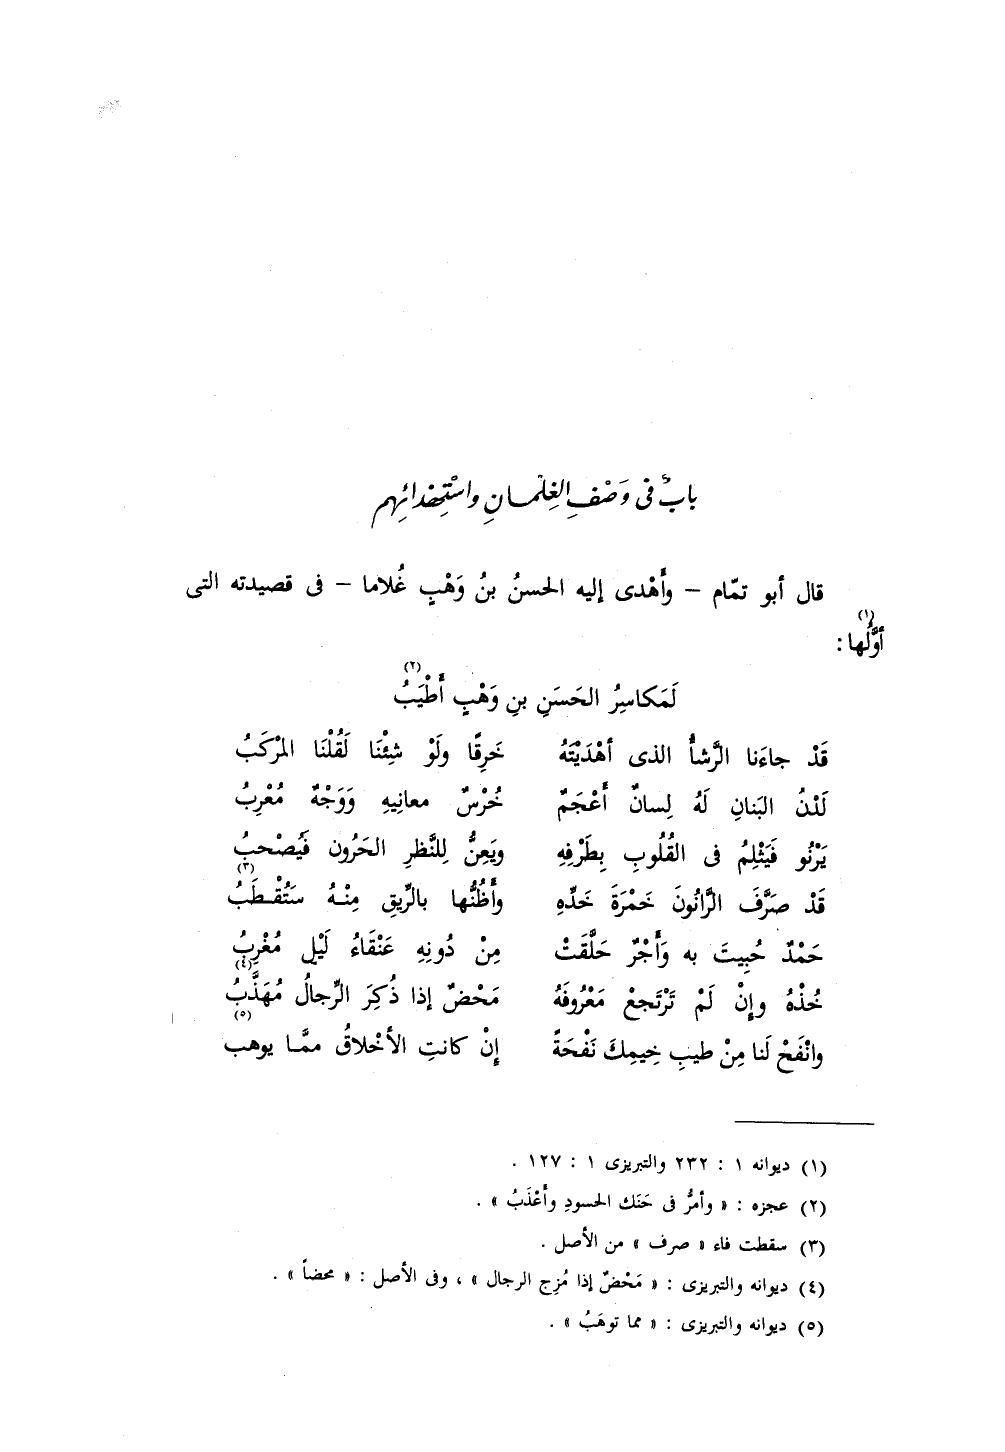 بابٌ فى وَصْفِ الغِلْمانِ واسْتِهْدائِهم
قال أبو تمّام – وأَهْدى إليه الحسنُ بنُ وَهْبٍ غُلاما – فى قصيدته التى
أوَّلُها (١) :
لَمَكاسِرُ الحَسَنِ بنِ وَهْبٍ أَطْيَبُ (٢)
قَدْ جاءَنا الرَّشأُ الذى أهْدَيْتَهُ خَرِقًا ولَوْ شِئْنَا لَقُلْنَا المْرَكَبُ
لَدْنُ البَنانِ لَهُ لِسانٌ أَعْجَمٌ خُرْسٌ معانِيهِ وَوَجْهٌ مُعْرِبُ
يَرْنُو فَيَثْلِمُ فى القُلُوبِ بِطَرْفِهِ ويَعِنُّ لِلنَّظرِ الحَرُون فَيُصْحبُ
قَدْ صَرَّفَ الرَّانُونَ خَمْرَةَ خَدِّهِ وأَظُنُّها بالرِّيقِ مِنْهُ سَتُقْطَبُ (٣)
حَمْدٌ حُبِيتَ به وَأَجْرٌ حَلَّقَتْ مِنْ دُونِهِ عَنْقَاءُ لَيْلٍ مُغْرِبُ
خُذْهُ وإِنْ لَمْ تَرْتَجعْ مَعْرُوفَهُ مَحْضٌ إذا ذُكِرَ الرِّجالُ مُهَذَّبُ (٤)
وانْفَحْ لَنا مِنْ طيبِ خِيمِكَ نَفْحَةً إِنْ كانتِ الأخْلاقُ ممَّا يوهب (٥)
(١) ديوانه ١ : ٢٣٢ والتبريزى ١ : ١٢٧ .
(٢) عجزه : « وأمرُّ فى حَنَك الحسودِ وأَعْذَبُ » .
(٣) سقطت فاء « صرف » من الأصل .
(٤) ديوانه والتبريزى : « مَحْضٌ إذا مُزِج الرجال » ، وفى الأصل : « محضاً » .
(٥) ديوانه والتبريزى : « مما توهَبُ » .